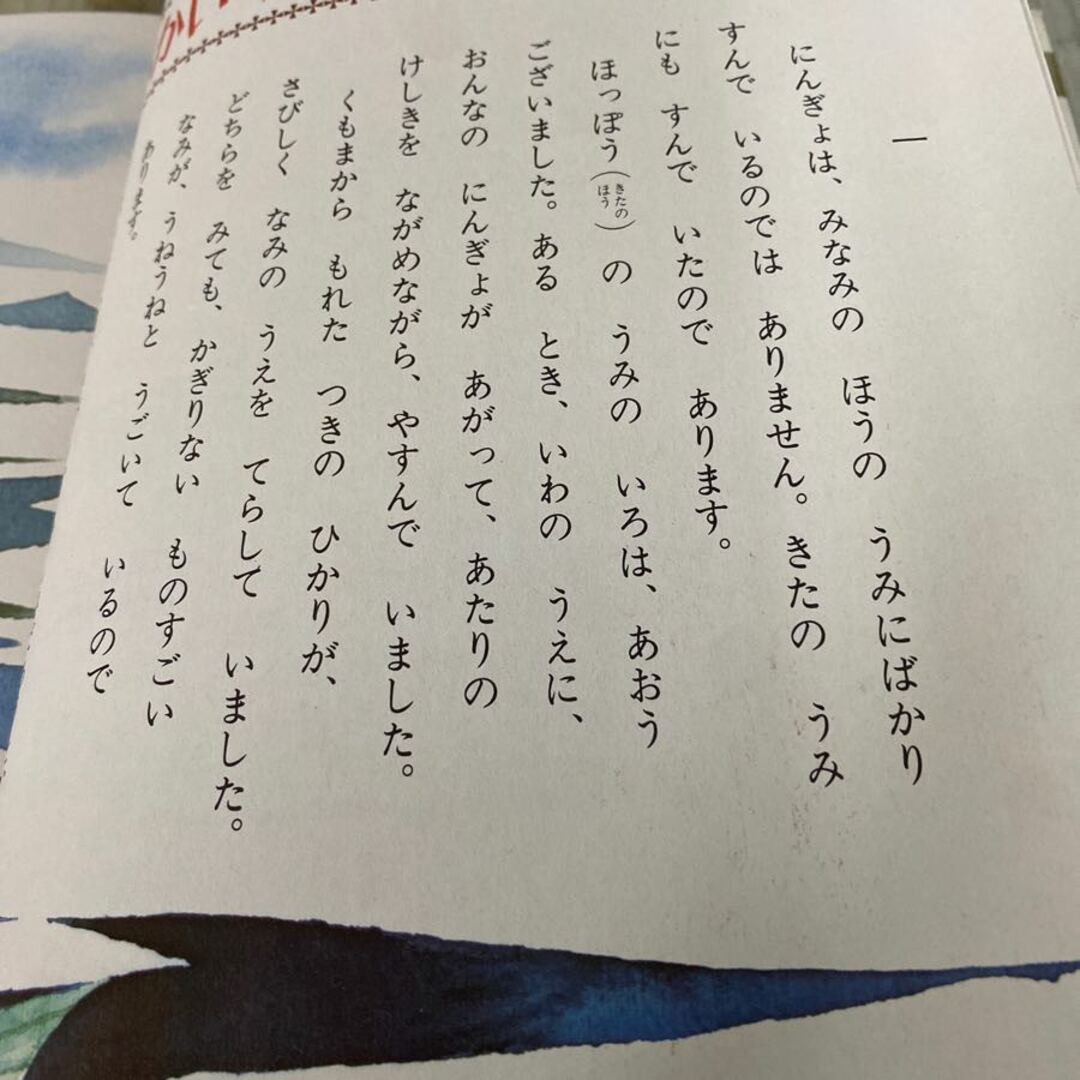 一
にんぎょは、みなみの ほうの うみにばかり
すんで いるのでは ありません。きたの うみ
にも すんで いたので あります。
ほっぽう(きたのほう)の うみの いろは、あおう
ございました。ある とき、いわの うえに、
おんなの にんぎょが あがって、あたりの
けしきを ながめながら、やすんで いました。
くもまから もれた つきの ひかりが、
さびしく なみの うえを てらして いました。
どちらを みても、かぎりない ものすごい
なみが、うねうねと うごいて いるので
あります。